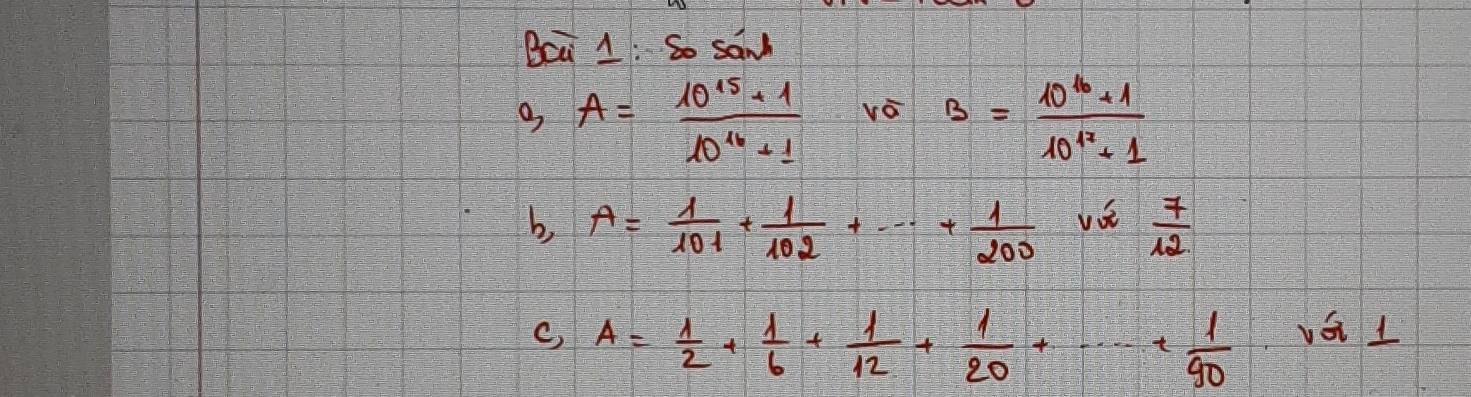 Bài 1: So sánh
a, A = \frac{10^{15} + 1}{10^{16} + 1} và B = \frac{10^{16} + 1}{10^{17} + 1}
b, A = \frac{1}{101} + \frac{1}{102} + ... + \frac{1}{200} với \frac{7}{12}
c, A = \frac{1}{2} + \frac{1}{6} + \frac{1}{12} + \frac{1}{20} + ..... + \frac{1}{90} với 1